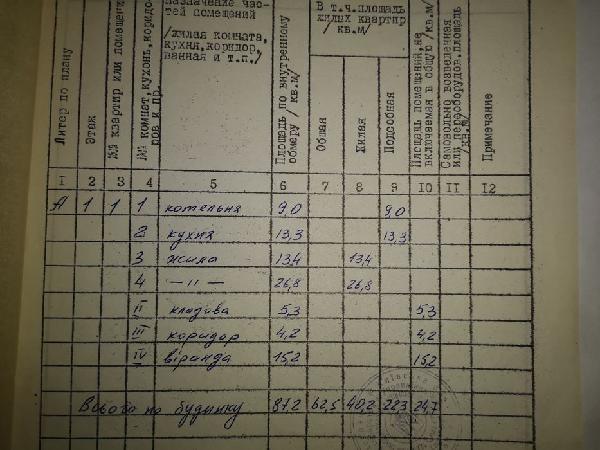 назначение час-
тей помещений
/жилая комната,
кухня, коридор,
ванная и т.п./
В т.ч.площадь
жилых квартир
/кв.м/
Литер по плану
Этаж
№№ квартир или помещений
№№ комнат, кухонь, коридо-
ров и пр.
Площадь по внутреннему
обмеру /кв.м/
Общая
Жилая
Подсобная
Площадь помещений, не
включаемая в общую /кв.м/
Самовольно возведенная
или переоборудов. площадь
/кв.м/
Примечание
I 2 3 4 5 6 7 8 9 10 II 12
А 1 1 1 котельня 9,0 9,0
2 кухня 13,3 13,3
3 жила 13,4 13,4
4 —//— 26,8 26,8
II кладова 5,3 5,3
III коридор 4,2 4,2
IV віранда 15,2 15,2
Всього по будинку 87,2 62,5 40,2 22,3 24,7